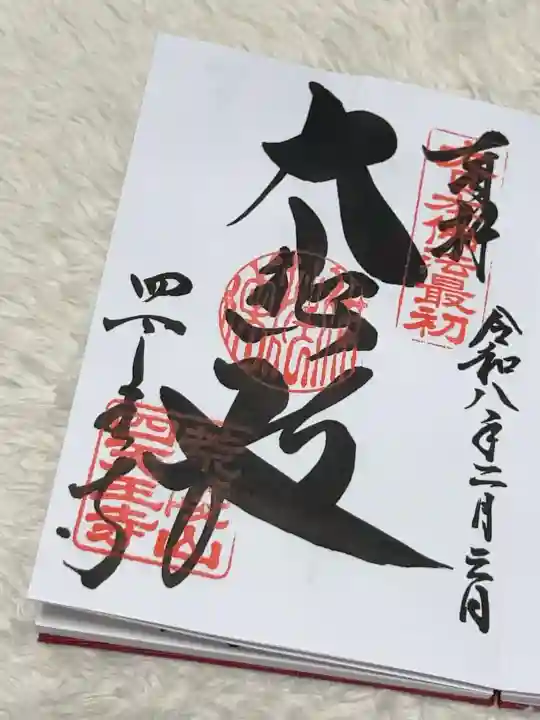 奉拝
大日本佛法最初
令和八年二月三日
大悲殿
四天王寺
荒陵山
四天王寺